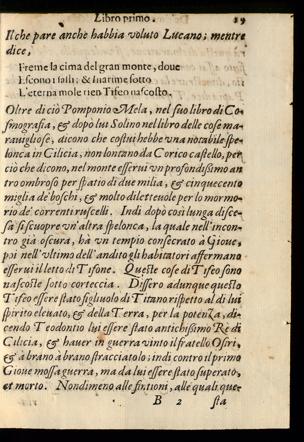 Libro primo. 19
Il che pare anche habbia voluto Lucano; mentre
dice,
Freme la cima del gran monte, doue
Escono i sassi; & Inarime sotto
L'eterna mole tien Tifeo nascosto.
Oltre di ciò Pomponio Mela, nel suo libro di Co-
smografia, & dopò lui Solino nel libro delle cose ma-
rauigliose, dicono che costui hebbe vna notabile spe-
lonca in Cilicia, non lontano da Corico castello, per
ciò che dicono, nel monte esserui vn profondissimo an
tro ombroso per spatio di due milia, & cinquecento
miglia de boschi, & molto diletteuole per lo mormo-
rio de' correnti ruscelli. Indi dopò così lunga disce-
sa si scuopre vn'altra spelonca, la quale nell'incon-
tro già oscura, hà vn tempio consecrato à Gioue,
poi nell'vltimo dell'andito gli habitatori affermano
esserui il letto di Tifone. Queste cose di Tifeo sono
nascoste sotto corteccia. Dissero adunque questo
Tifeo essere stato figliuolo di Titano rispetto al di lui
spirito eleuato, & della Terra, per la potenza, di-
cendo Teodontio lui essere stato antichissimo Rè di
Cilicia, & hauer in guerra vinto il fratello Osiri,
& à brano à brano stracciatolo; indi contro il primo
Gioue mossa guerra, ma da lui essere stato superato,
et morto. Nondimeno alle fintioni, alle quali que-
B 2 sta